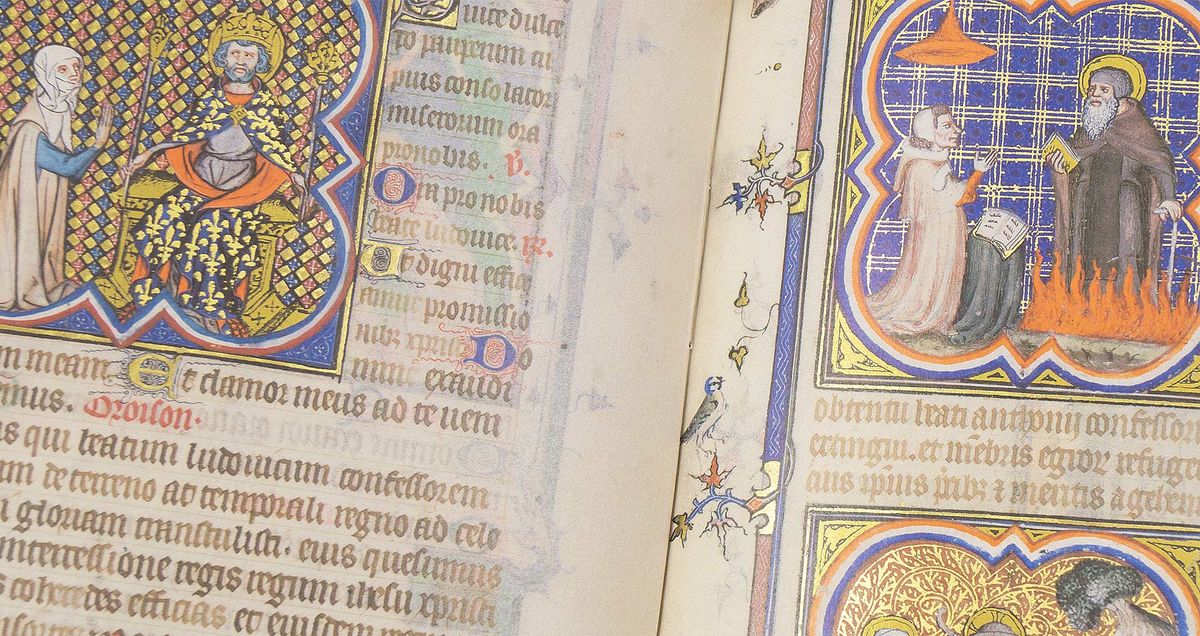 uice dulce
to pauperum ai
puis consolator
miserorum ora
pro nobis. V.
Ora pro nobis
beate ludouice. R.
Ut digni effici
amur promissio
nibz xpristi Do
mine exaudi
m meam Et clamor meus ad te uem
Oroison.
s qui beatum ludouicum confessorem
am de terreno ac temporali regno ad cele
gloriam transtulisti. eius quesumus
intercessione regis regum ihesu xpristi
s coheredes efficias et eiusdem
obtentu beati anthonij confessor
extingui. et membris egior refuge